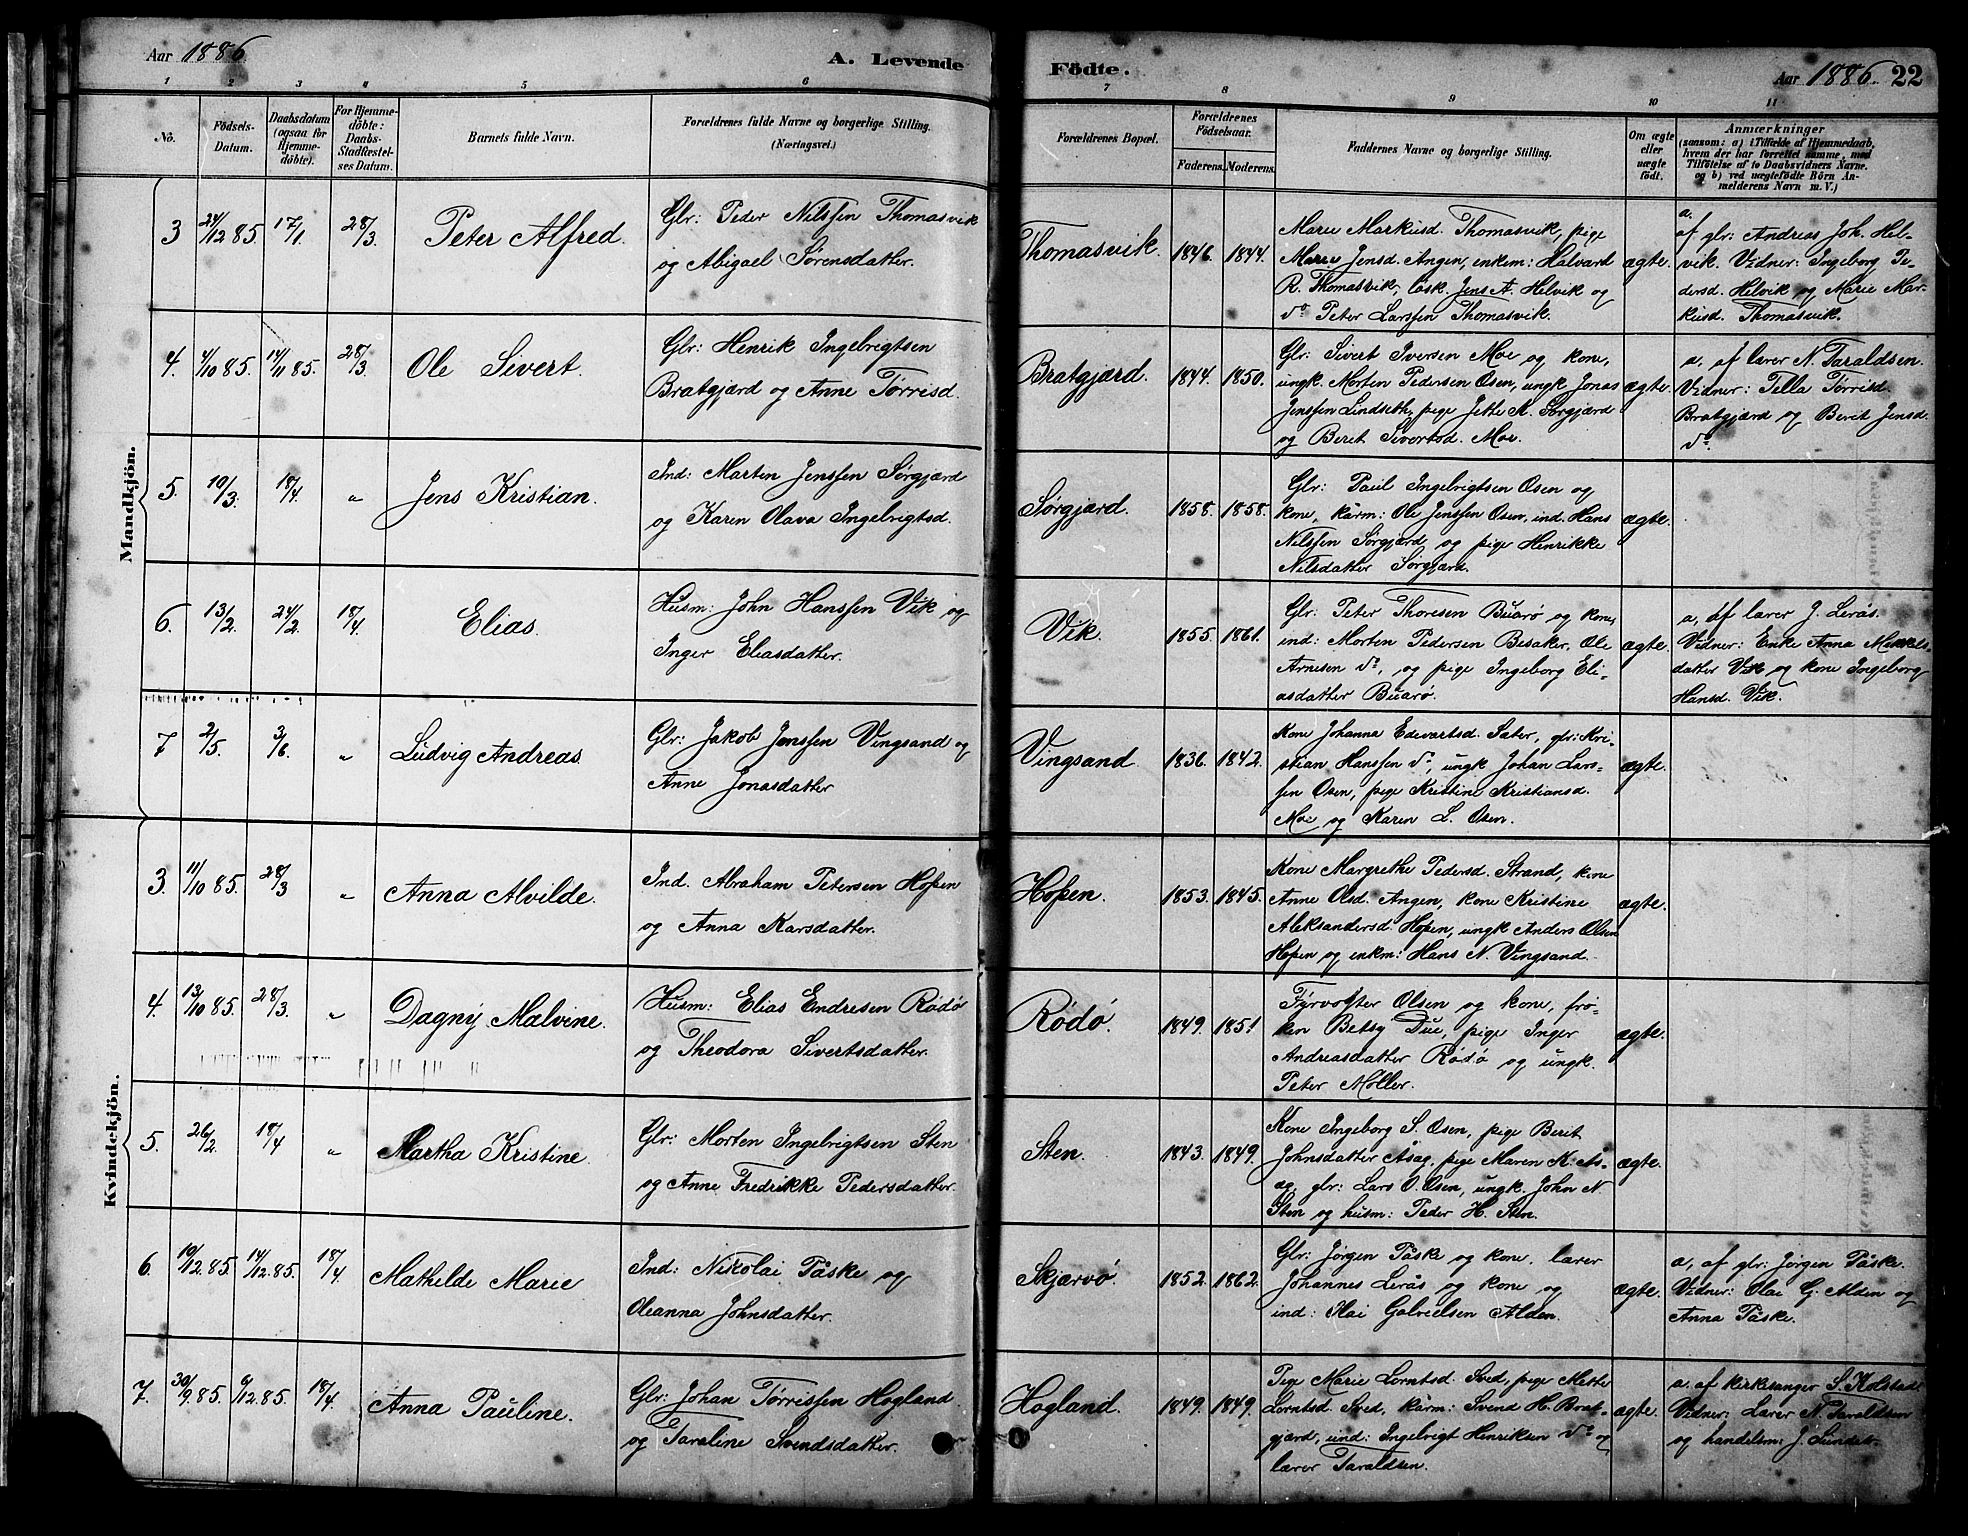 Aar 1886
A. Levende
Födte.
Aar 1886. 22
1 2 3 4 5 6 7 8 9 10 11
No.
Födsels-
Datum.
Daabsdatum
(ogsaa for
Hjemme-
döbte).
For Hjemme-
döbte:
Daabs-
Stadfæstel-
ses Datum.
Barnets fulde Navn.
Forældrenes fulde Navne og borgerlige Stilling.
(Næringsvei.)
Forældrenes Bopæl.
Forældrenes
Födselsaar.
Faderens. Moderens.
Faddernes Navne og borgerlige Stilling.
Om ægte
eller
uægte
födt.
Anmærkninger
(saasom: a) i Tilfælde af Hjemmedaab,
hvem der har forrettet samme, med
Tilföielse af to Daabsvidners Navne.
og b) ved uægtefödte Börn An-
melderens Navn m. V.)
Mandkjön.
3 24/12 85. 17/1. 28/3. Peter Alfred.
Glr: Peder Nilssen Thomasvik
og Abigael Sørensdatter.
Thomasvik. 1846. 1844.
Marie Markusd. Thomasvik, pige
Marie Jensd. Angen, enkem: Halvard
R. Thomasvik, løsk. Jens A. Helvik og
do Peter Larssen Thomasvik.
ægte.
a.
af glr: Andreas Joh. Hel-
vik. Vidner: Ingeborg Pe-
dersd. Helvik og Marie Mar-
kusd. Thomasvik.
4. 4/10 85. 14/11 85. 28/3. Ole Sivert.
Glr: Henrik Ingebrigtsen
Bratgjærd og Anne Tørrisd.
Bratgjærd. 1844. 1850.
Glr: Sivert Iversen Moe og kone,
ungk. Morten Pedersen Osen, ungk Jonas
Jenssen Lindseth, pige Jette M. Sørgjærd
og Beret Sivertsd. Moe.
ægte.
a, af lærer N. Taraldsen.
Vidner: Tella Tørrisd.
Bratgjærd og Berit Jensd.
do
5. 10/3. 18/4. " Jens Kristian.
Ind: Martin Jenssen Sørgjærd
og Karen Olava Ingebrigtsd.
Sørgjærd. 1858. 1858.
Glr: Paul Ingebrigtsen Osen og
kone, karm: Ole Jenssen Osen, ind. Hans
Nilssen Sørgjærd og pige Henrikke
Nilsdatter Sørgjærd.
ægte.
6. 13/2. 24/2. 18/4. Elias.
Husm: John Hanssen Vik og
Inger Eliasdatter.
Vik. 1855. 1861.
Glr: Peter Thoresen Buarø og kone,
ind: Morten Pedersen Besaker, Ole
Arnesen do, og pige Ingeborg Eli-
asdatter Buarø.
ægte.
a, af lærer J. Lerås.
Vidner: Enke Anna Mikkels-
datter Vik og kone Ingeborg
Hansd. Vik.
7 2/5. 3/6. " Ludvig Andreas.
Glr: Jakob Jenssen Vingsand og
Anne Jonasdatter
Vingsand 1836. 1842.
Kone Johanna Edevartsd. Sæter, glr: Kri-
stian Hanssen do, ungk Johan Lars-
sen Osen, pige Kristine Kristiansd.
Moe og Karen L. Osen.
ægte.
Kvindekjön.
3. 11/10 85. 28/3 " Anna Alvilde.
Ind. Abraham Petersen Hopen
og Anna Karsdatter.
Hopen. 1853. 1845.
Kone Margrethe Pedersd. Strand, kone
Anne Olsd. Angen, kone Kristine
Aleksandersd. Hopen, ungk Anders Olsen
Hopen og enkm: Hans N. Vingsand.
ægte.
4. 13/10 85. 28/3. " Dagny Malvine.
Husm: Elias Endresen Rødø
og Theodora Sivertsdatter.
Rødø. 1849. 1851
Fyrvogter Olsen og kone, frø-
ken Betsy Due, pige Inger
Andreasdatter Rødø og ungk.
Peter Møller.
ægte.
5. 26/2. 18/4 " Martha Kristine.
Glr: Morten Ingebrigtsen Sten
og Anne Fredrikke Pedersdatter.
Sten. 1843. 1849.
Kone Ingeborg S. Osen, pige Berit
Johnsdatter Åsag, pige Maren K. Ås-
ag, glr: Lars O. Osen, ungk. John N
Sten og husm: Peder H. Sten.
ægte.
6. 10/12 85. 14/12 85. 18/4 Mathilde Marie
Ind: Nikolai Påske og
Oleanna Johnsdatter.
Skjærvø. 1852. 1862.
Glr: Jørgen Påske og kone, lærer
Johannes Lerås og kone og
ind: Olai Gabrielsen Alden.
ægte.
a, af glr: Jörgen Påske.
Vidner: Olai G. Alden og
Anna Påske.
7. 30/9 85. 6/12 85. 18/4 Anna Pauline.
Glr: Johan Tørrissen Hogland
og Taraline Svendsdatter.
Hogland. 1849. 1849.
Pige Marie Lorntsd. Sved, pige Mette
Lorntsd. Sved, karm: Svend H. Brat-
gjærd, ind: Ingebrigt Henriksen do og
lærer Taraldsen.
ægte.
a. af kirkesanger S. Kolstad
Vidner: Lærer N. Taraldsen
og handelsm: J. Sundet.